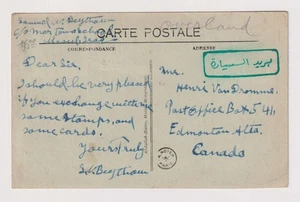 Samuel
Overland
CARTE POSTALE
CORRESPONDANCE
ADRESSE
بريد السيارة
Dear Sir,
I should be very pleased
if you exchange with me
some stamps, and
some cards.
Yours truly
Mr.
Henri Van Dromme.
Post office Box 541.
Edmonton Alta.
Canada